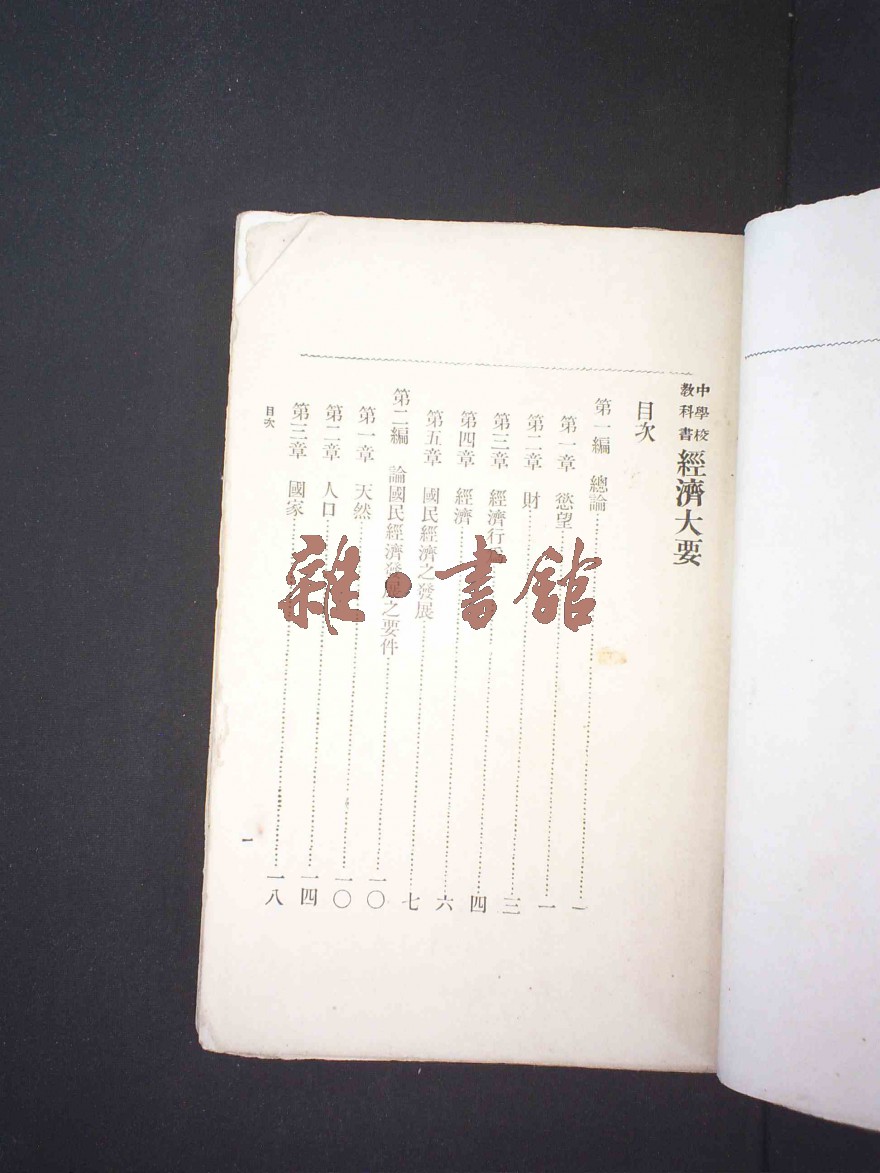 中學校
教科書
經濟大要
目次
第一編 總論 一
第一章 慾望 一
第二章 財 三
第三章 經濟行 四
第四章 經濟 六
第五章 國民經濟之發展 七
第二編 論國民經濟發展之要件 一〇
第一章 天然 一〇
第二章 人口 一四
第三章 國家 一八
目次
一
雜·書館